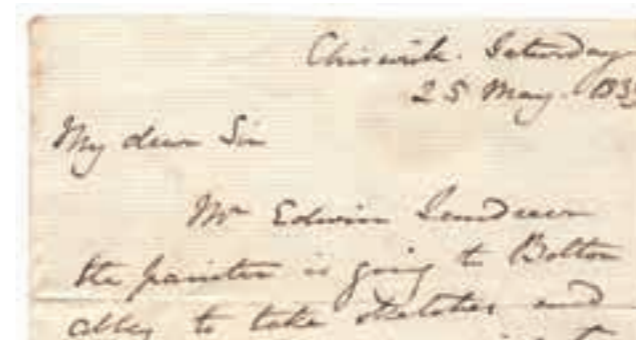 Chiswick. Saturday
25 May. 183
My dear Sir
Mr Edwin Landseer
the painter is going to Bolton
Abbey to take sketches and